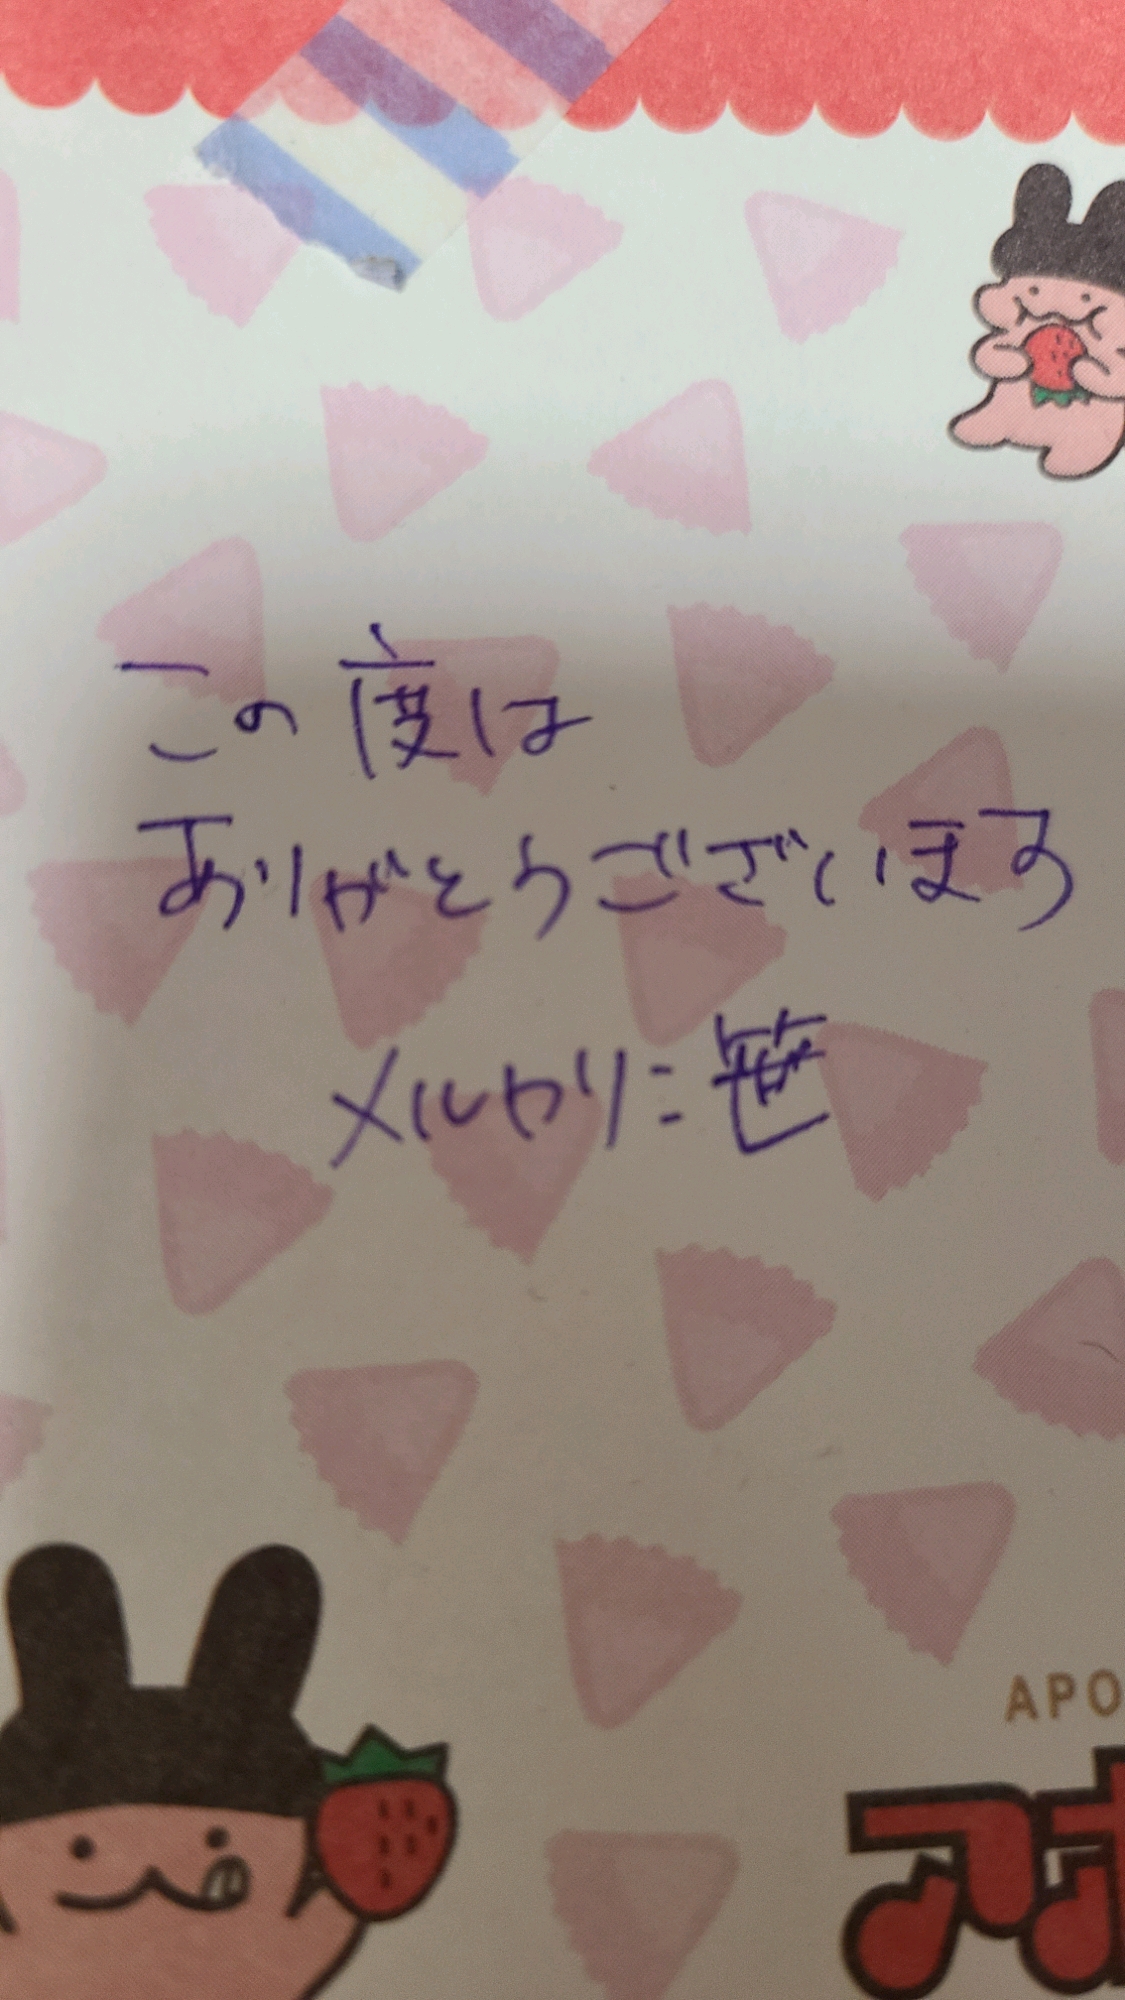 この度は
ありがとうございます
メルカリ:笹
APO
アポ